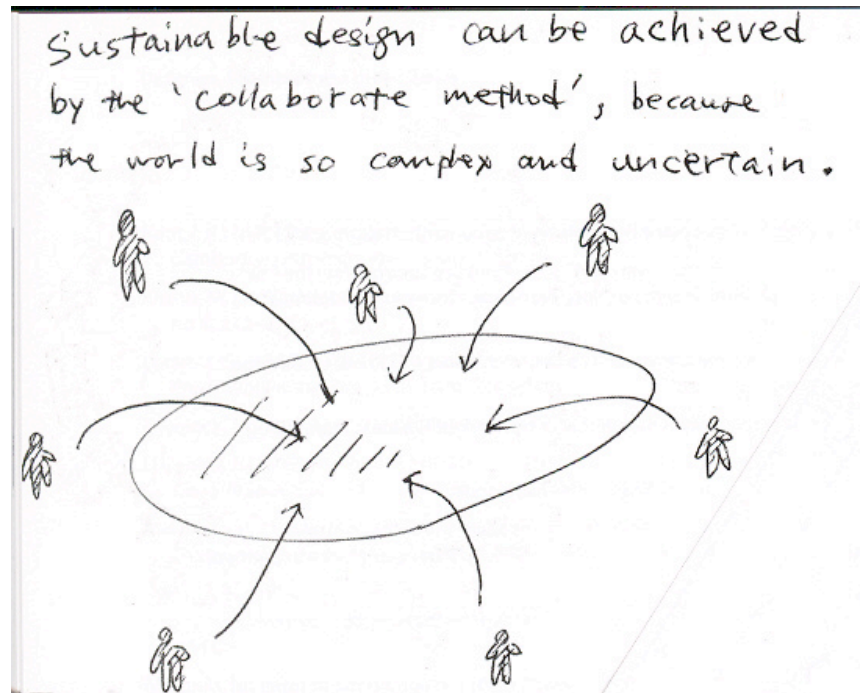 Sustainable design can be achieved
by the 'collaborate method', because
the world is so complex and uncertain.